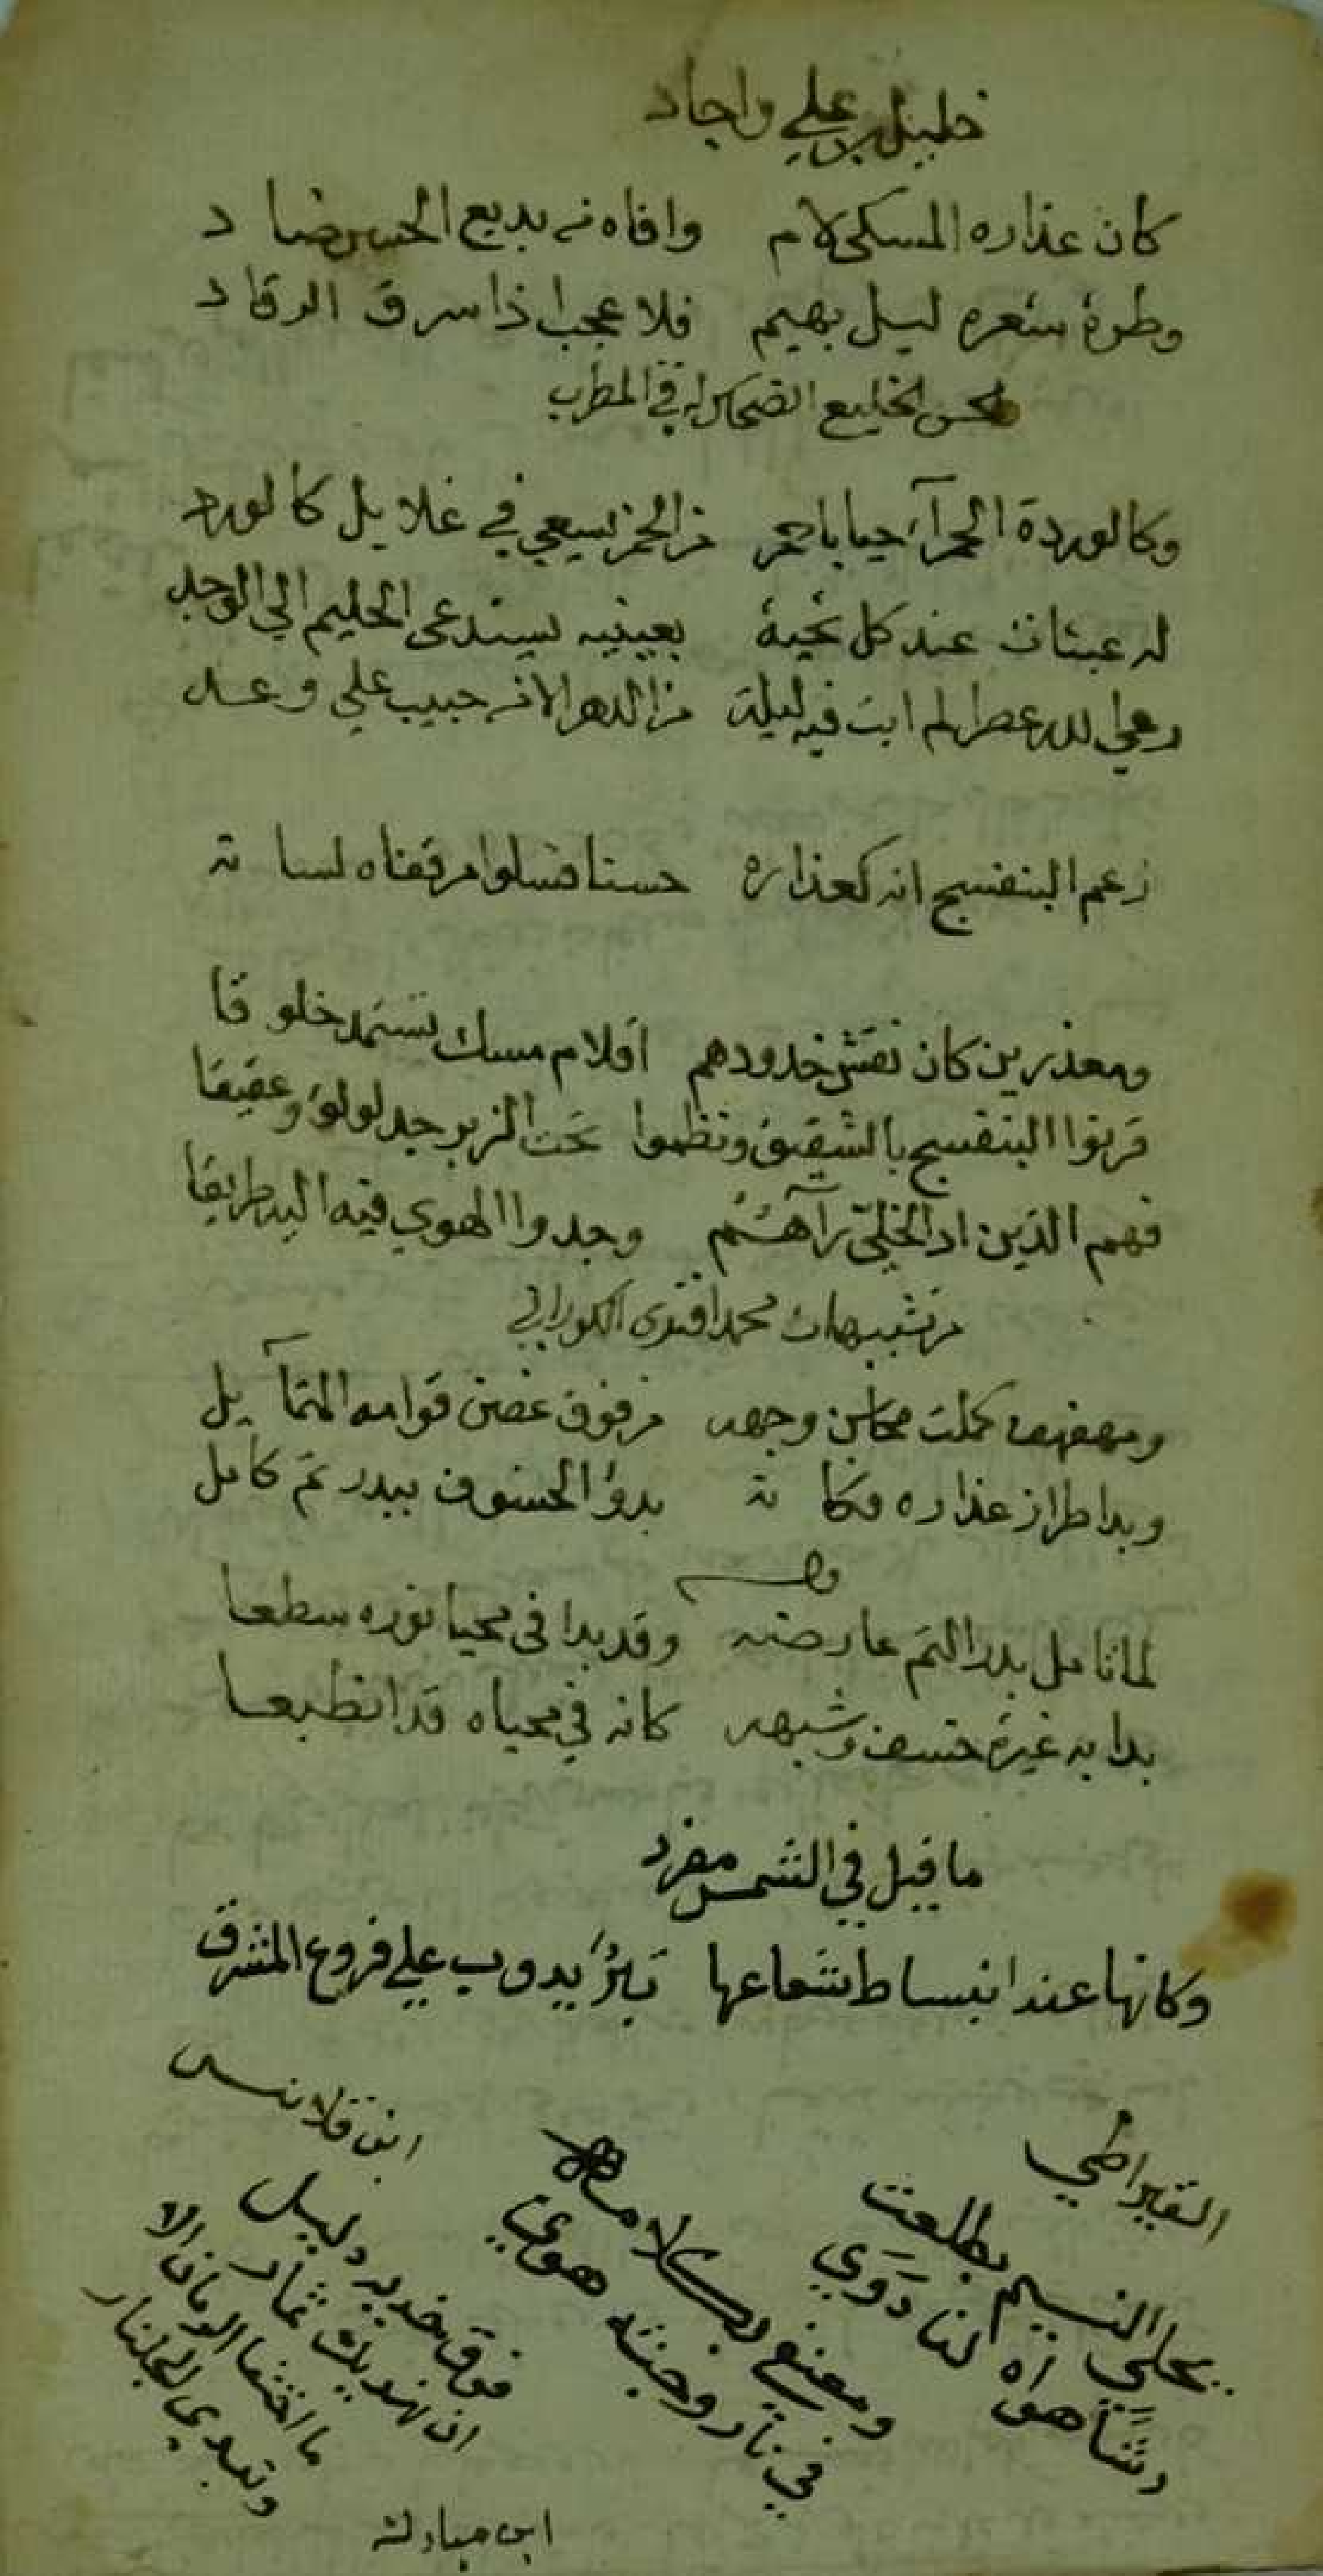 خليل بن علي واجاد
كان عذاره المسكي لام وافاه من بديع الحسن ضاد
وطرة شعره ليل بهيم فلا عجب اذا سرق الرقاد
الخليع الضحاك في المطرب
وكالوردة الحمرآء حيا باحمر من الخمر يسعي في غلايل كالورد
له عبثات عند كل تحية بعينيه يستدعى الحليم الي الوجد
رعي الله عصرا لم ابت فيه ليلة من الدهر الا من حبيب علي وعد
زعم البنفسج انه كعذاره حسنا فسلوا من قفاه لسانه
ومعذرين كان نقش خدودهم اقلام مسك تستمد خلوقا
قرنوا البنفسج بالشقيق ونظموا تحت الزبرجد لولؤ وعقيقا
فهم الذين اذ الخليّ رآهُمُ وجدوا الهوي فيه اليه طريقا
من تشبيهات محمد افندى الكوراني
ومهفهف كملت محاسن وجهه من فوق غصن قوامه المتمآيل
وبدا طراز عذاره فكانه بدؤ الخسوف ببدر تم كامل
وله
لما تامل بدر التم عارضه وقد بدا فى محيا نوره سطعا
بدا به غيرة خسف وشبهه كانه في محياه قد انطبعا
ما قيل في الشمس مفرد
وكانها عند انبساط شعاعها تبرٌ يدوب علي فروع المشرق
القيراطي
يحكي النسيم بطلعت
رشأ هواه لنا دَوَي
ومغنغ بكلامه
في نار وجنته هوي
ابن قلانس
فوق خديه دليل
ان نهديك ثمار
ما اختفا الرمان الا
وتبدي الجلنار
ابن مبارك